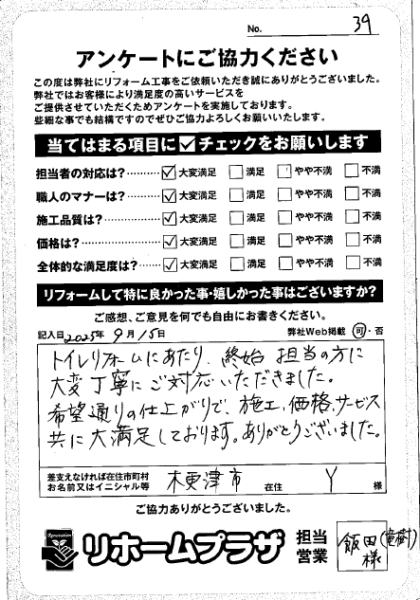 No. 39
アンケートにご協力ください
この度は弊社にリフォーム工事をご依頼いただき誠にありがとうございました。
弊社ではお客様により満足度の高いサービスを
ご提供させていただくためアンケートを実施しております。
些細な事でも結構ですのでぜひご協力よろしくお願いいたします。
当てはまる項目に✓チェックをお願いします
担当者の対応は?………… ☑大変満足 □満足 □やや不満 □不満
職人のマナーは?………… ☑大変満足 □満足 □やや不満 □不満
施工品質は?……………… ☑大変満足 □満足 □やや不満 □不満
価格は?…………………… ☑大変満足 □満足 □やや不満 □不満
全体的な満足度は?……… ☑大変満足 □満足 □やや不満 □不満
リフォームして特に良かった事・嬉しかった事はございますか?
ご感想、ご意見を何でも自由にお書きください。
記入日2025年9月15日 弊社Web掲載 可・否
トイレリフォームにあたり、終始担当の方に
大変丁寧にご対応いただきました。
希望通りの仕上がりで、施工、価格、サービス
共に大満足しております。ありがとうございました。
差支えなければ在住市町村
お名前又はイニシャル等 木更津市 在住 Y 様
ご協力ありがとうございました。
Renovation リホームプラザ 担当
営業 飯田(竜樹)
様